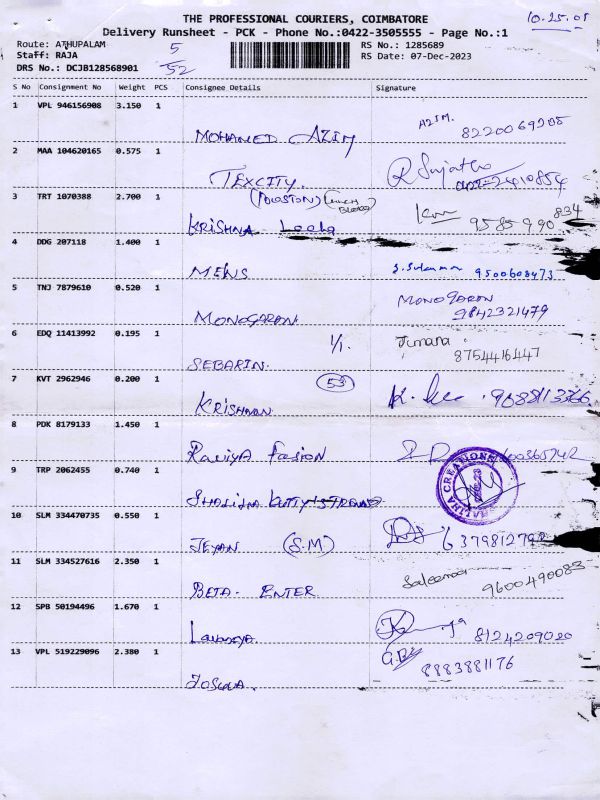 THE PROFESSIONAL COURIERS, COIMBATORE
10.25.05
Delivery Runsheet - PCK - Phone No.:0422-3505555 - Page No.:1
Route: ATHUPALAM
5
RS No.: 1285689
Staff: RAJA
52
RS Date: 07-Dec-2023
DRS No.: DCJB128568901
S No Consignment No Weight PCS Consignee Details Signature
1 VPL 946156908 3.150 1
MOHAMED AZIM AZIM. 8220069205
2 MAA 104620165 0.575 1
TEXCITY.
3 TRT 1070388 2.700 1
(BOSTON)
KRISHNA Leela 9585990834
4 DDG 207118 1.400 1
MENS 9500608473
5 TNJ 7879610 0.520 1
MONOGARAN MONOGARAN 9842321479
6 EDQ 11413992 0.195 1
1/1.
SEBARIN. Jumana 8754416447
7 KVT 2962946 0.200 1
53
KRISHNAN 9688113366
8 PDK 8179133 1.450 1
Raviya Fasion
9 TRP 2062455 0.740 1
CREATIONS
10 SLM 334470735 0.550 1
JEYAN (S.M) 6379812792
11 SLM 334527616 2.350 1
BETA. ENTER Saleema 9600490083
12 SPB 50194496 1.670 1
8124209020
13 VPL 519229096 2.380 1
8883881176
JOSUVA.